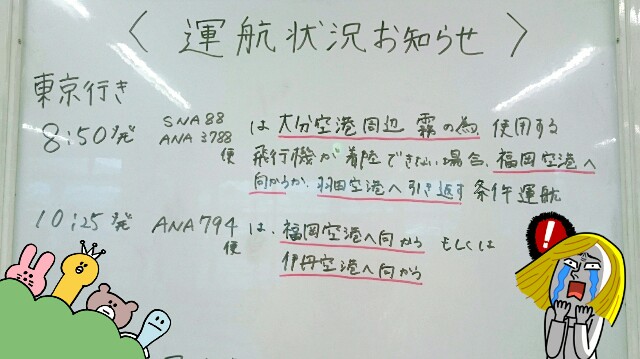 〈 運航状況お知らせ 〉
東京行き
8:50発 SNA 88 は 大分空港周辺 霧の為、使用する
ANA 3788
便 飛行機が着陸できない場合、福岡空港へ
向かうか、羽田空港へ引き返す 条件運航
10:25発 ANA 794 は、福岡空港へ向かう もしくは
便 伊丹空港へ向かう
!